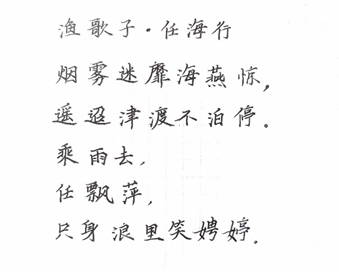 渔歌子·任海行
烟雾迷靡海燕惊,
遥迢津渡不泊停.
乘雨去,
任飘萍,
只身浪里笑娉婷.